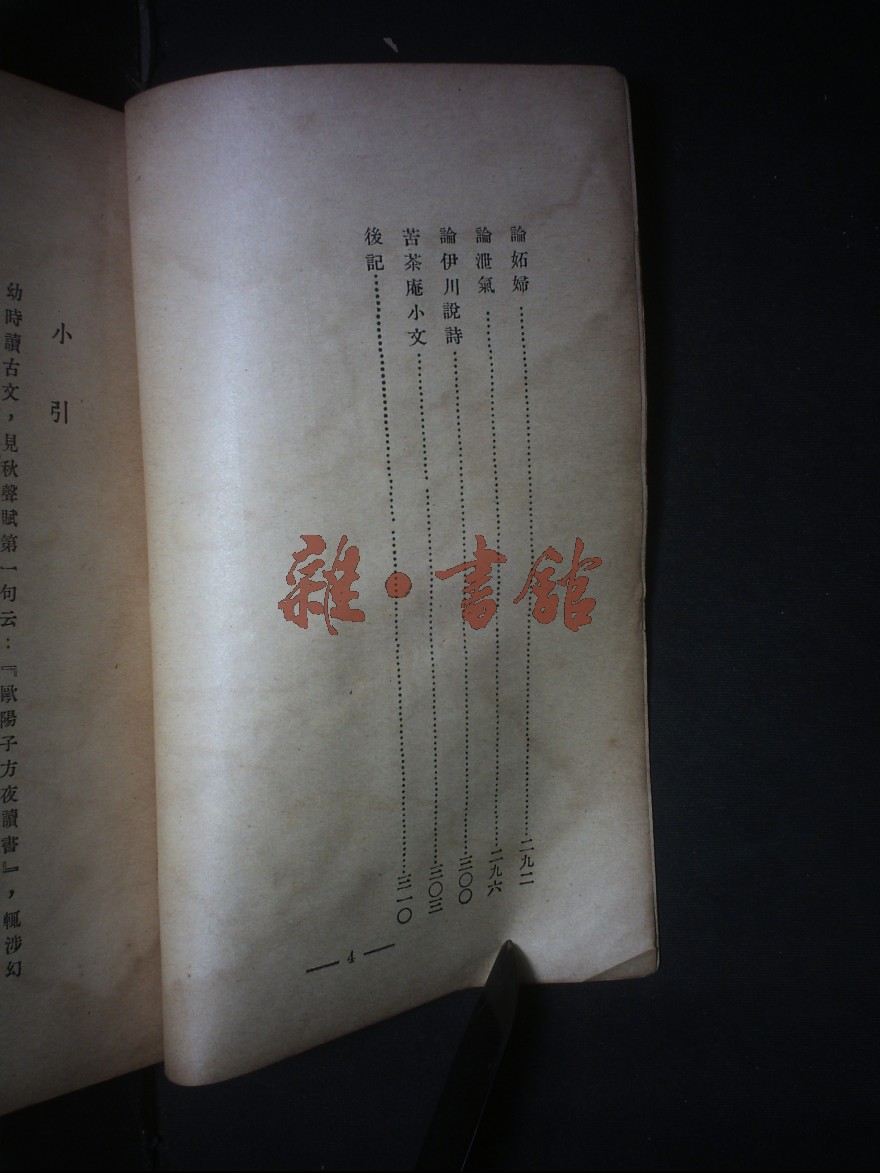 論妬婦……二九二
論泄氣……二九六
論伊川說詩……三〇〇
苦茶庵小文……三〇三
後記……三一〇
— 4 —
雜·書館
小引
幼時讀古文，見秋聲賦第一句云：『歐陽子方夜讀書』，輒涉幻